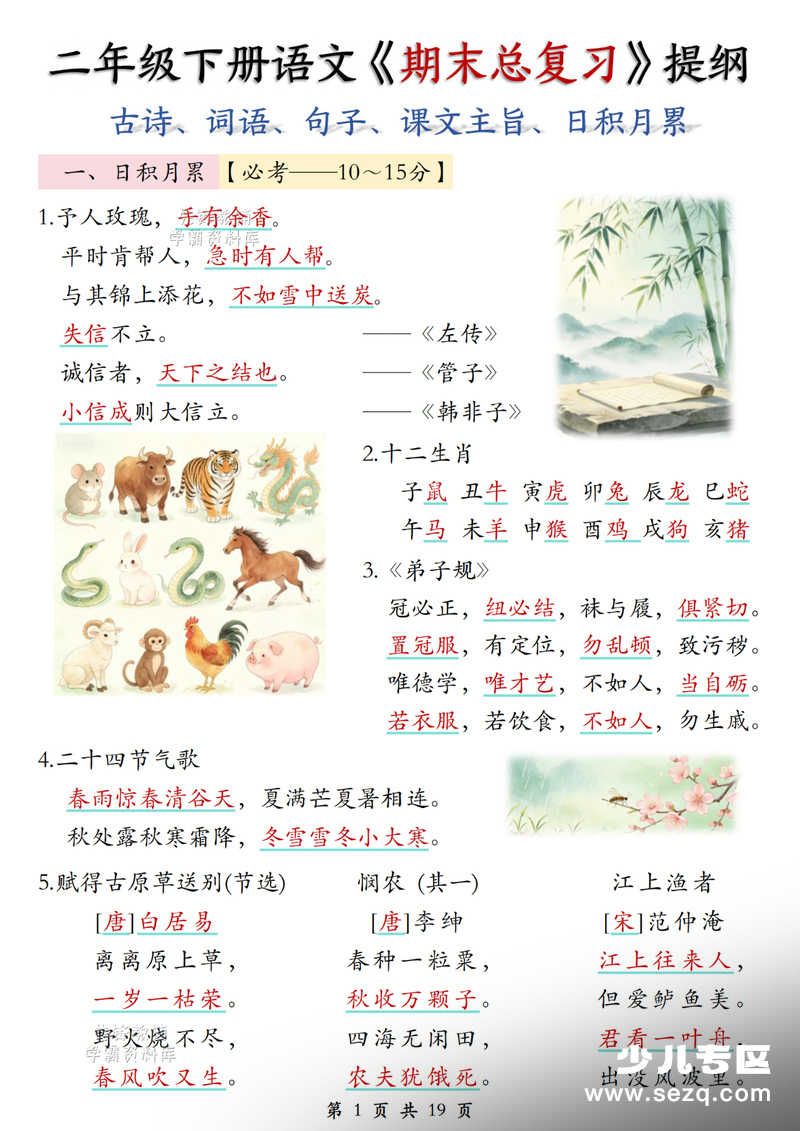 二年级下册语文《期末总复习》提纲
古诗、词语、句子、课文主旨、日积月累
一、日积月累【必考——10～15分】
1.予人玫瑰，手有余香。
学霸资料库
平时肯帮人，急时有人帮。
与其锦上添花，不如雪中送炭。
失信不立。 ——《左传》
诚信者，天下之结也。 ——《管子》
小信成则大信立。 ——《韩非子》
2.十二生肖
子鼠 丑牛 寅虎 卯兔 辰龙 巳蛇
午马 未羊 申猴 酉鸡 戌狗 亥猪
3.《弟子规》
冠必正，纽必结，袜与履，俱紧切。
置冠服，有定位，勿乱顿，致污秽。
唯德学，唯才艺，不如人，当自砺。
若衣服，若饮食，不如人，勿生戚。
4.二十四节气歌
春雨惊春清谷天，夏满芒夏暑相连。
秋处露秋寒霜降，冬雪雪冬小大寒。
5.赋得古原草送别(节选) 悯农 (其一) 江上渔者
[唐]白居易 [唐]李绅 [宋]范仲淹
离离原上草， 春种一粒粟， 江上往来人，
一岁一枯荣。 秋收万颗子。 但爱鲈鱼美。
野火烧不尽， 四海无闲田， 君看一叶舟，
学霸资料库
春风吹又生。 农夫犹饿死。 出没风波里。
少儿专区
www.sezq.com
第 1 页 共 19 页